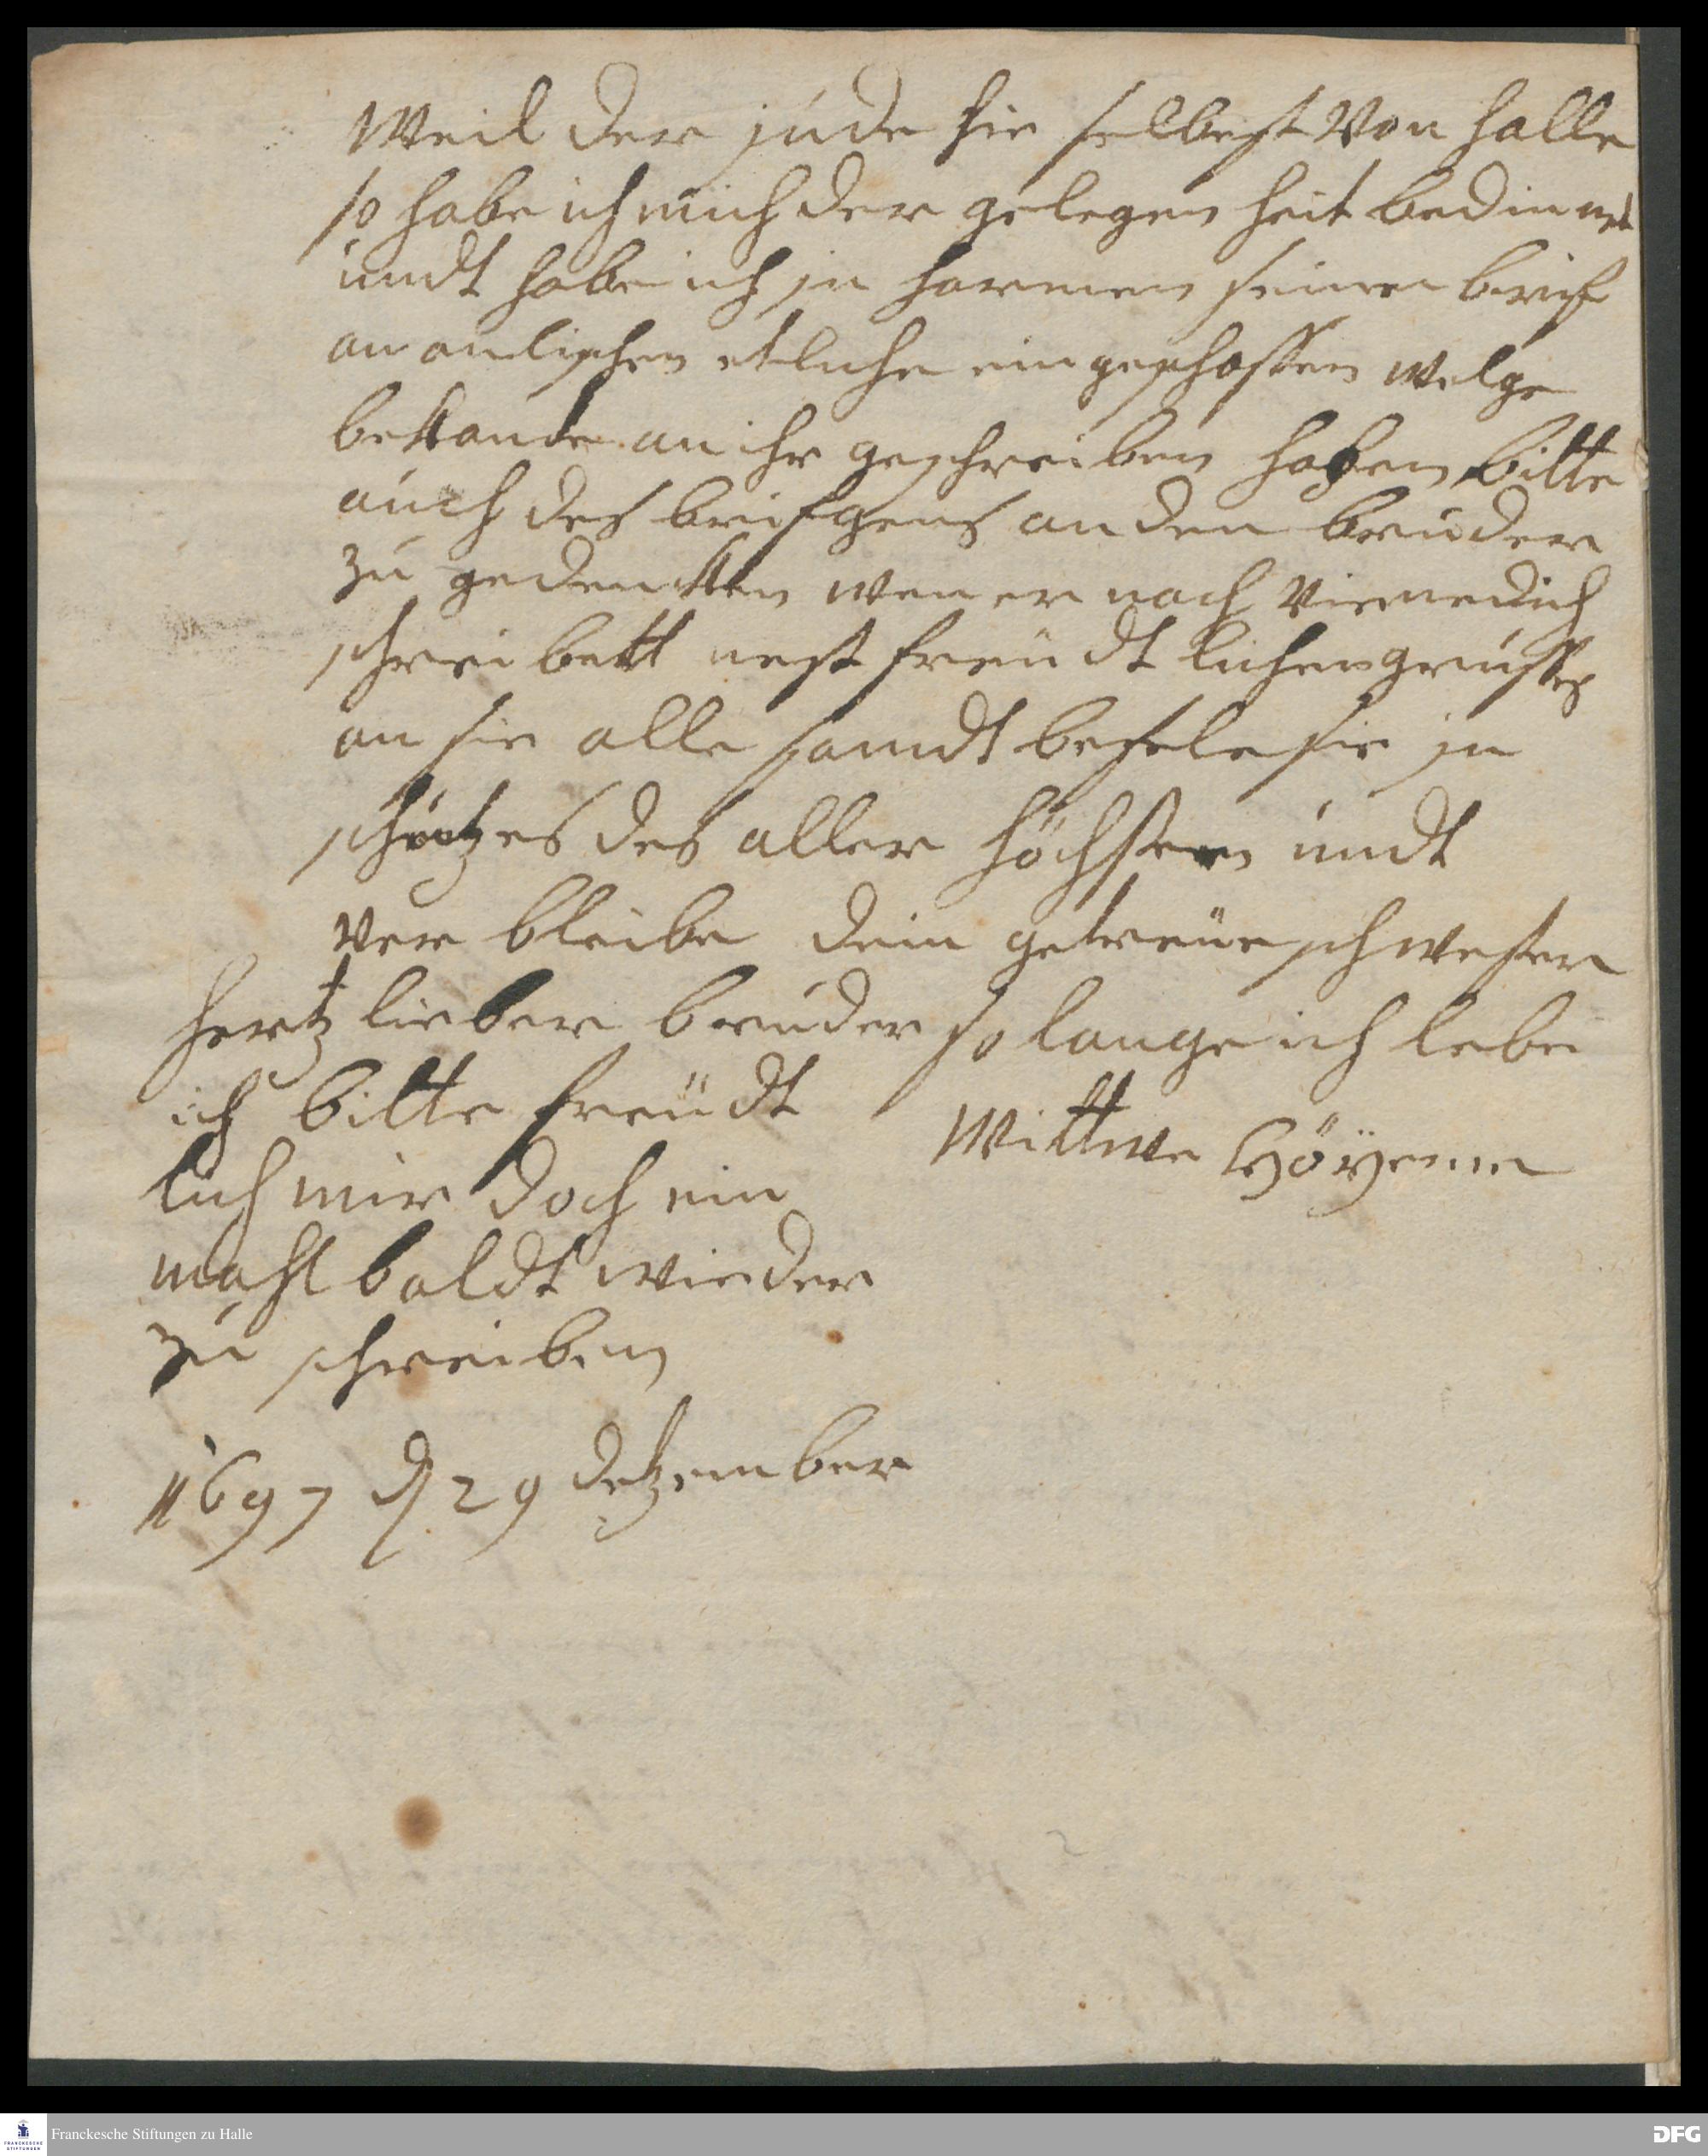 Weil der jude hie selbest von halle
so habe ich mich der gelegen heit bedinnet
undt habe ich in harmens seinen breif
an etliche ein geschossen welge
bekande an ihr geschreiben haben bitte
auch des breifgens an den bruder
zu gedencken wen er nach
schrei bett nest freundt lichen grusses
an sie alle samdt befele sie in
schutzes des aller höchsten undt
ver bleibe dein getreue schwester
hertz lieber bruder so lange ich lebe
ich bitte freündt
Wittwe Höyerne
lich mir doch ein
mahl baldt wieder
zu schreiben
1697 d 29 detzember
Franckesche Stiftungen zu Halle
DFG